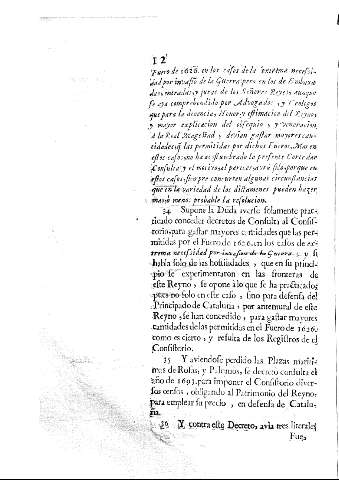 12
Fuero de 1626. en los casos de la extrema necessi-
dad por invasion de la Guerra, pero en los de Embaxa-
das, entradas, y juras de los Señores Reyes, aunque
se aya comprehendido por Advogados, y Teologos
que para la decencia, honor, y estimacion del Reyno
y mayor explicacion del obsequio, y veneracion
a la Real Magestad, y devian gastar mayores can-
tidades q̃ las permitidas por dichos Fueros. Mas en
estos casos no ha acostumbrado la presente Corte dar
Consulta y el motivo, al parecer, avrà sido, porque en
estos casos siempre concurren algunas circunstancias
que en la variedad de los dictamenes pueden hazer
mas, ò menos probable la resolucion.
34 Supone la Duda averse solamente prac-
ticado conceder decretos de Consulta al Consis-
torio, para gastar mayores cantidades que las per-
mitidas por el Fuero de 1626. en los casos de ex-
trema necessidad por invasion de la Guerra, y si
habla solo de las hostilidades, que en su princi-
pio se experimentaron en las fronteras de
este Reyno, se opone à lo que se ha practicado
pues no solo en este caso, sino para defensa del
Principado de Cataluña, por antemural de este
Reyno, se han concedido, para gastar mayores
cantidades de las permitidas en el Fuero de 1626.
como es cierto, y resulta de los Registros de el
Consistorio.
35 Y aviendose perdido las Plazas mariti-
mas de Rosas, y Palamos, se decretò consulta el
año de 1693. para imponer el Consistorio diver-
sos censos, obligando al Patrimonio del Reyno,
para emplear su precio, en defensa de Catalu-
ña.
36 Y contra este Decreto, avia tres literales
Fue-